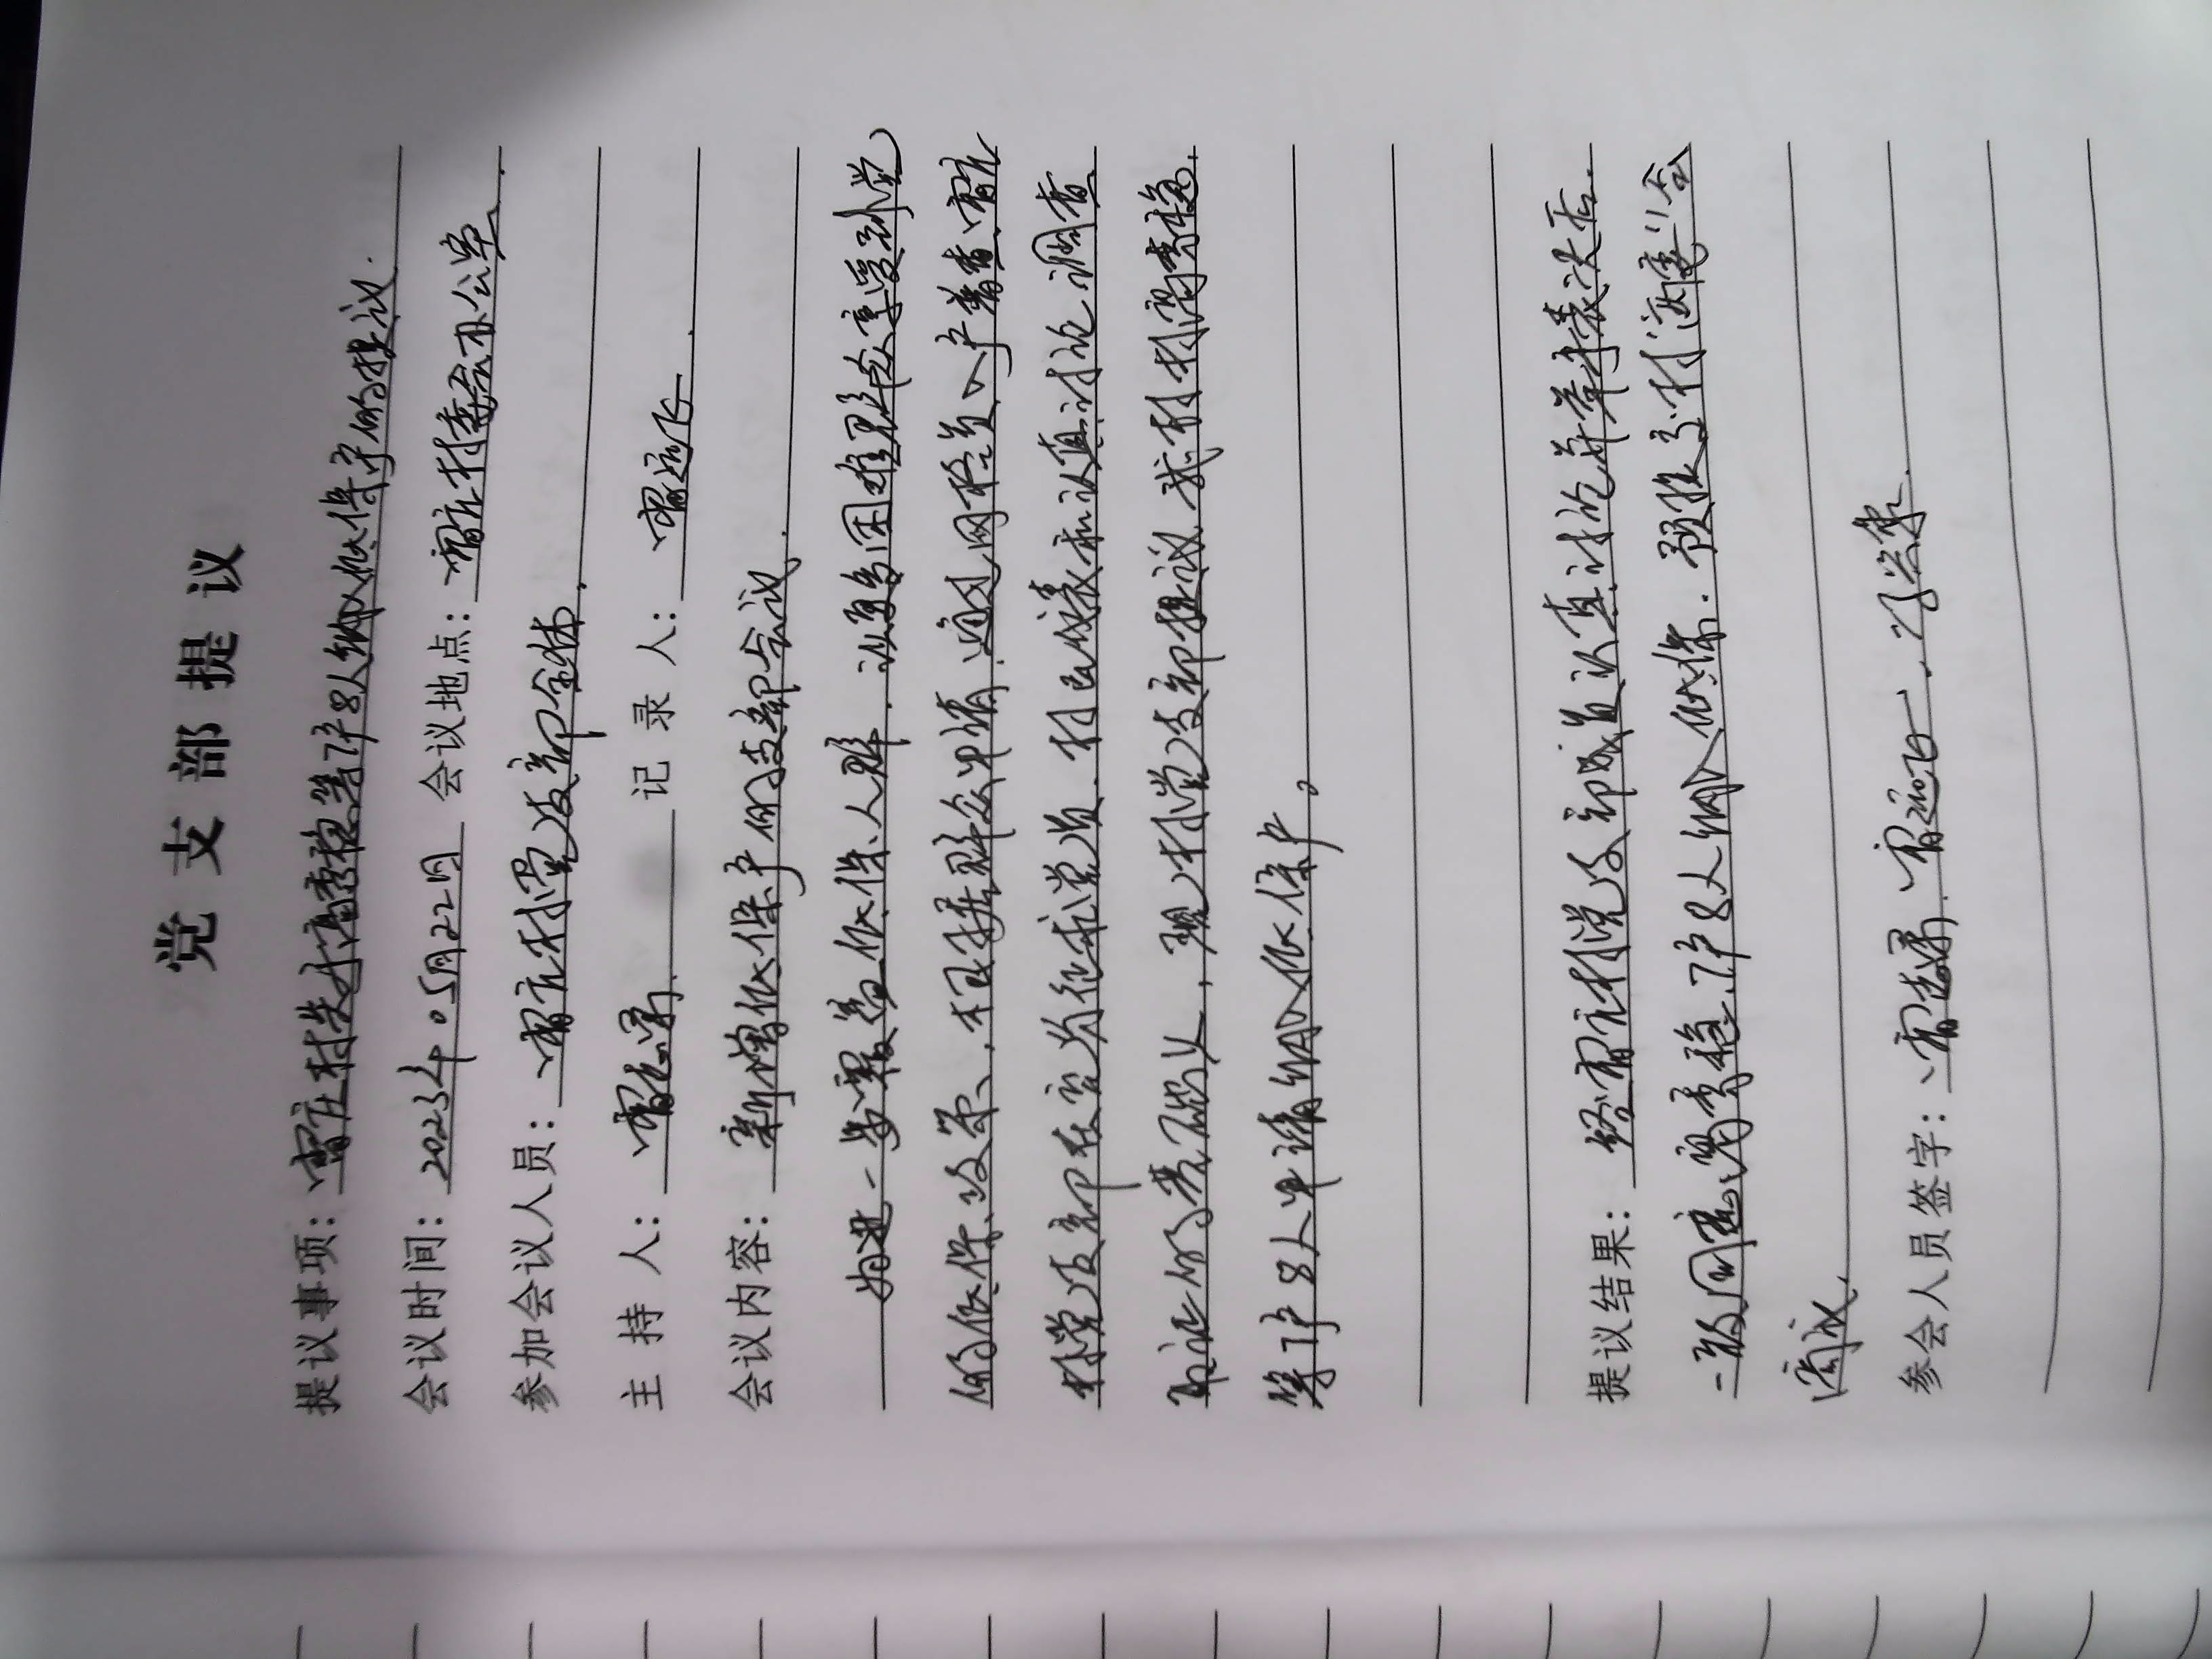 党支部提议
提议事项：雷庄村关于高秀稳等7户8人纳入低保户的提议.
会议时间：2023年05月22日 会议地点：雷庄村委会办公室.
参加会议人员：雷庄村党支部全体.
主持人：雷志军. 记录人：雷远飞.
会议内容：新增低保户的支部会议.
为进一步覆盖低保人群.让更多困难群众享受到党
的低保政策，根据群众申请，通过网格员入户普查，雷庄
村党支部在充分征求党员、村民代表和认真讨论调查
取证的基础上，现村党支部提议我村村高秀稳，
等7户8人申请纳入低保户。
提议结果：经雷庄村党支部成员认真讨论并举手表决后.
一致同意高秀稳、7户8人纳入低保.预提交村“两委”会
商议.
参会人员签字：雷志军、雷远飞、